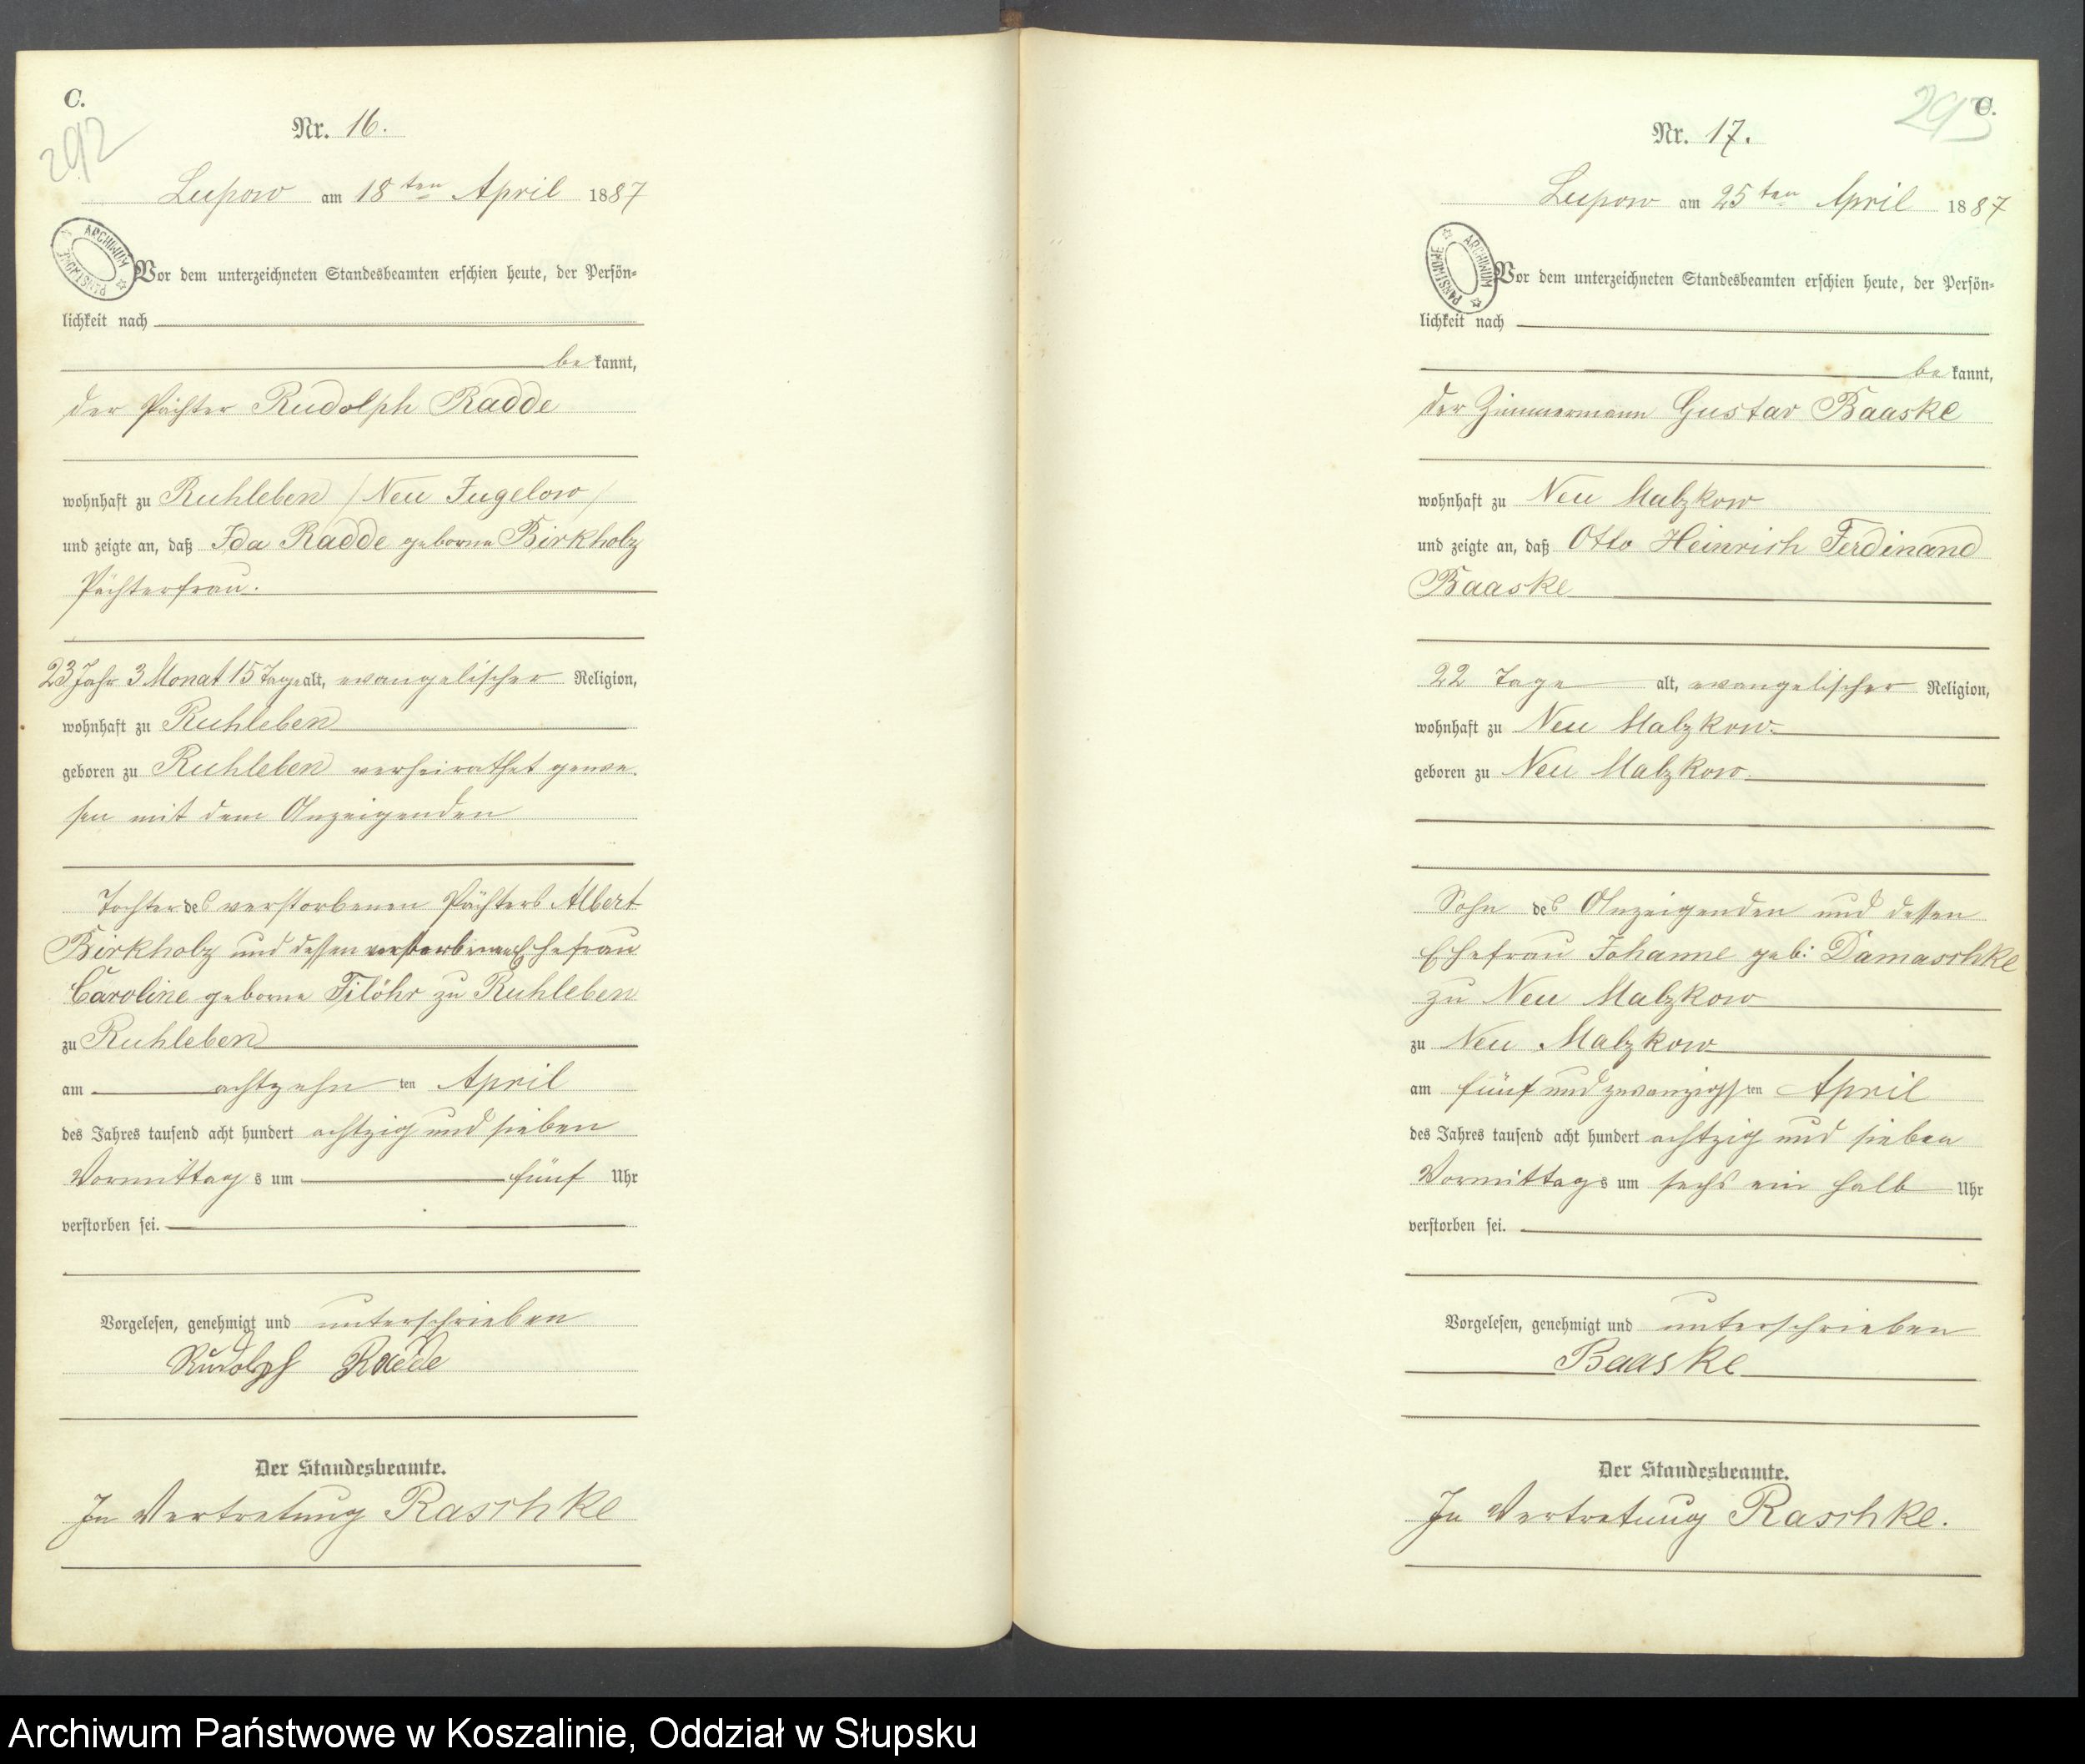 C.
292
Nr. 16.
Lupow am 18ten April 1887
ARCHIWUM PAŃSTWOWE
Vor dem unterzeichneten Standesbeamten erschien heute, der Persön-
lichkeit nach
be kannt,
der Pächter Rudolph Radde
wohnhaft zu Ruhleben / Neu Jugelow /
und zeigte an, daß Ida Radde geborne Birkholz
Pächterfrau.
23 Jahr 3 Monat 15 Tage alt, evangelischer Religion,
wohnhaft zu Ruhleben
geboren zu Ruhleben verheirathet gewe-
sen mit dem Anzeigenden
Tochter des verstorbenen Pächters Albert
Birkholz und dessen verstorbenen Ehefrau
Caroline geborne zu Ruhleben
zu Ruhleben
am achtzehn ten April
des Jahres tausend acht hundert achtzig und sieben
Vormittag s um fünf Uhr
verstorben sei.
Vorgelesen, genehmigt und unterschrieben
Rudolph Radde
Der Standesbeamte.
In Vertretung Raschke
C.
293
Nr. 17.
Lupow am 25ten April 1887
ARCHIWUM PAŃSTWOWE
Vor dem unterzeichneten Standesbeamten erschien heute, der Persön-
lichkeit nach
be kannt,
der Zimmermann Gustav Baaske
wohnhaft zu Neu Malzkow
und zeigte an, daß Otto Heinrich Ferdinand
Baaske
22 Tage alt, evangelischer Religion,
wohnhaft zu Neu Malzkow.
geboren zu Neu Malzkow.
Sohn des Anzeigenden und dessen
Ehefrau Johanne geb: Damaschke
zu Neu Malzkow
zu Neu Malzkow
am fünf und zwanzigsten April
des Jahres tausend acht hundert achtzig und sieben
Vormittags um sechs ein halb Uhr
verstorben sei.
Vorgelesen, genehmigt und unterschrieben
Baaske
Der Standesbeamte.
In Vertretung Raschke.
Archiwum Państwowe w Koszalinie, Oddział w Słupsku